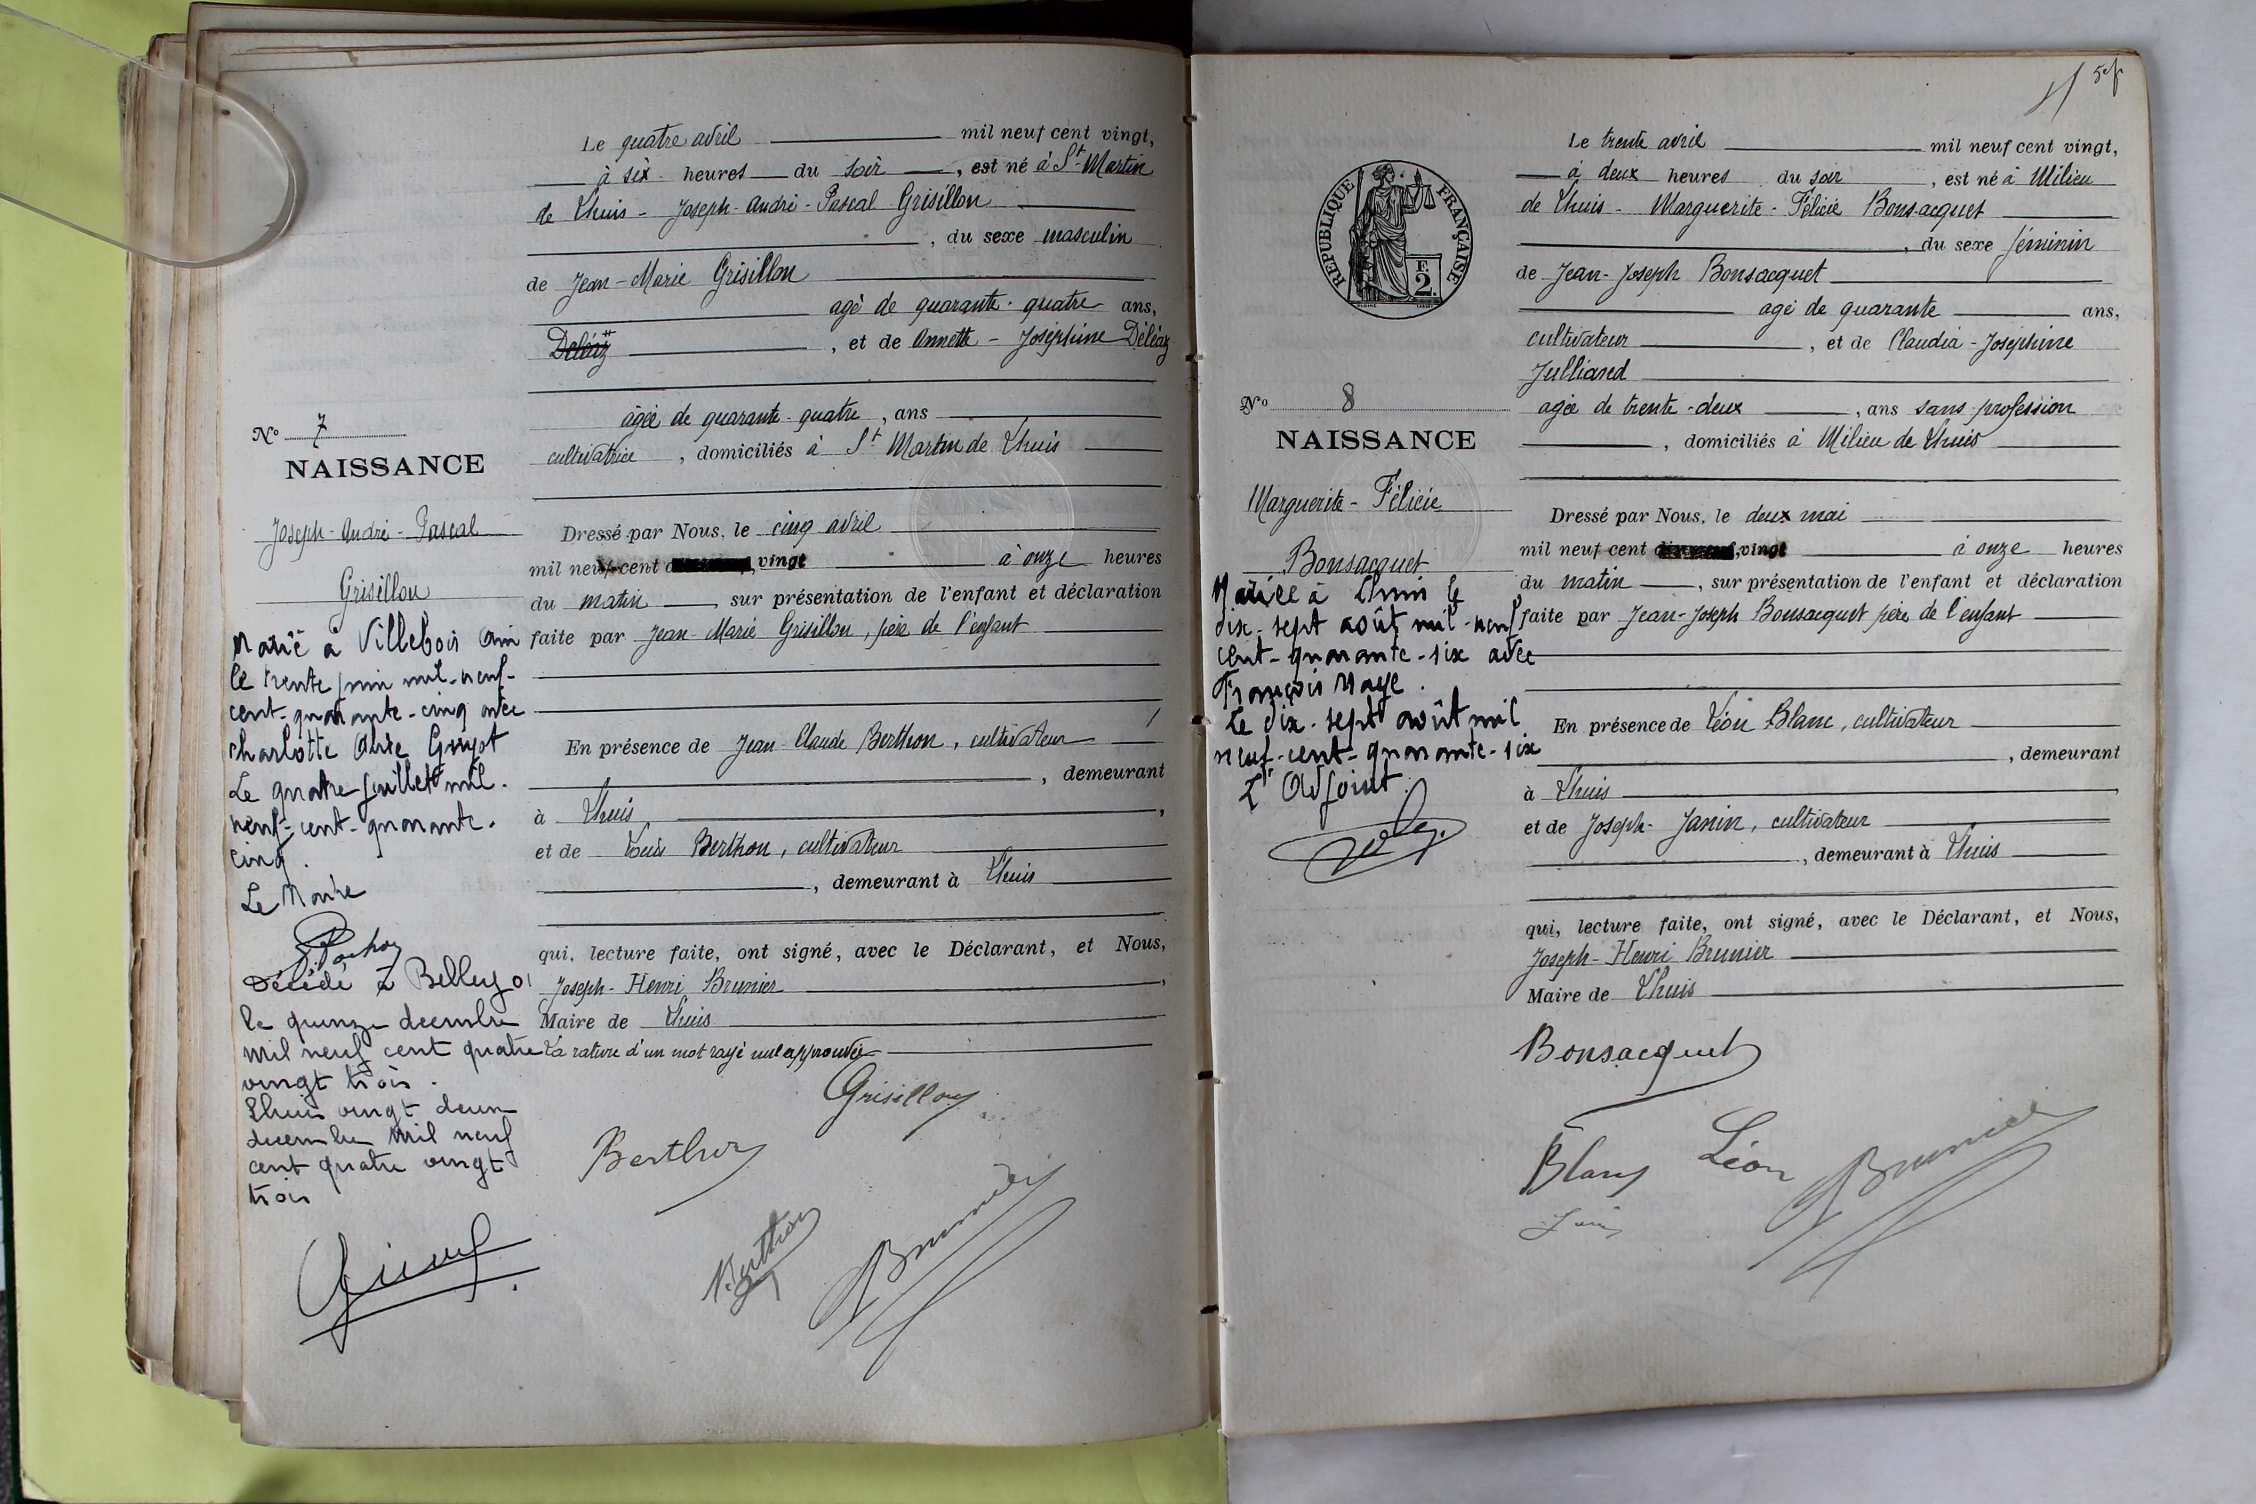 Le quatre avril mil neuf cent vingt,
à six heures du soir, est né à St Martin
de Lhuis - Joseph - André - Pascal Grisillon
, du sexe masculin
de Jean - Marie Grisillon
agé de quarante - quatre ans,
Deléaz , et de Annette - Joséphine Déléaz
âgée de quarante - quatre, ans
cultivatrice, domiciliés à St Martin de Lhuis
No 7
NAISSANCE
Joseph - André - Pascal
Grisillon
Dressé par Nous, le cinq avril
mil neuf cent vingt à onze heures
du matin, sur présentation de l'enfant et déclaration
faite par Jean - Marie Grisillon, père de l'enfant
En présence de Jean Claude Berthon, cultivateur
, demeurant
à Lhuis,
et de Louis Berthon, cultivateur
, demeurant à Lhuis
qui, lecture faite, ont signé, avec le Déclarant, et Nous,
Joseph - Henri Brunier,
Maire de Lhuis
La rature d'un mot rayé nul approuvée
Grisillon
Berthon
Berthon
Brunier
Marié à Villebois Ain
le trente juin mil - neuf -
cent - quarante - cinq avec
Charlotte Guyot
Le quatre juillet mil -
neuf - cent - quarante -
cinq.
Le Maire
Décédé à Belley 01
le quinze décembre
mil neuf cent quatre
vingt trois.
Lhuis vingt deux
décembre mil neuf
cent quatre vingt
trois
5
RÉPUBLIQUE FRANÇAISE
F.
2.
Le trente avril mil neuf cent vingt,
à deux heures du soir, est né à Milieu
de Lhuis - Marguerite - Félicie Bonsacquet
, du sexe féminin
de Jean - Joseph Bonsacquet
agé de quarante ans,
cultivateur, et de Claudia - Joséphine
Julliand
agée de trente - deux, ans sans profession
, domiciliés à Milieu de Lhuis
No 8
NAISSANCE
Marguerite - Félicie
Bonsacquet
Dressé par Nous, le deux mai
mil neuf cent vingt à onze heures
du matin, sur présentation de l'enfant et déclaration
faite par Jean - Joseph Bonsacquet père de l'enfant
En présence de Léon Blanc, cultivateur
, demeurant
à Lhuis,
et de Joseph - Janin, cultivateur
, demeurant à Lhuis
qui, lecture faite, ont signé, avec le Déclarant, et Nous,
Joseph - Henri Brunier
Maire de Lhuis
Bonsacquet
Blanc Léon
Brunier
Mariée à Lhuis le
dix - sept août mil - neuf
cent - quarante - six avec
François Maye.
Le dix - sept août mil
neuf - cent - quarante - six
L' Adjoint.